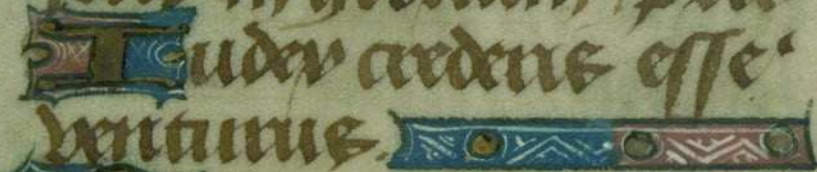 Iudex crederis esse
venturus.